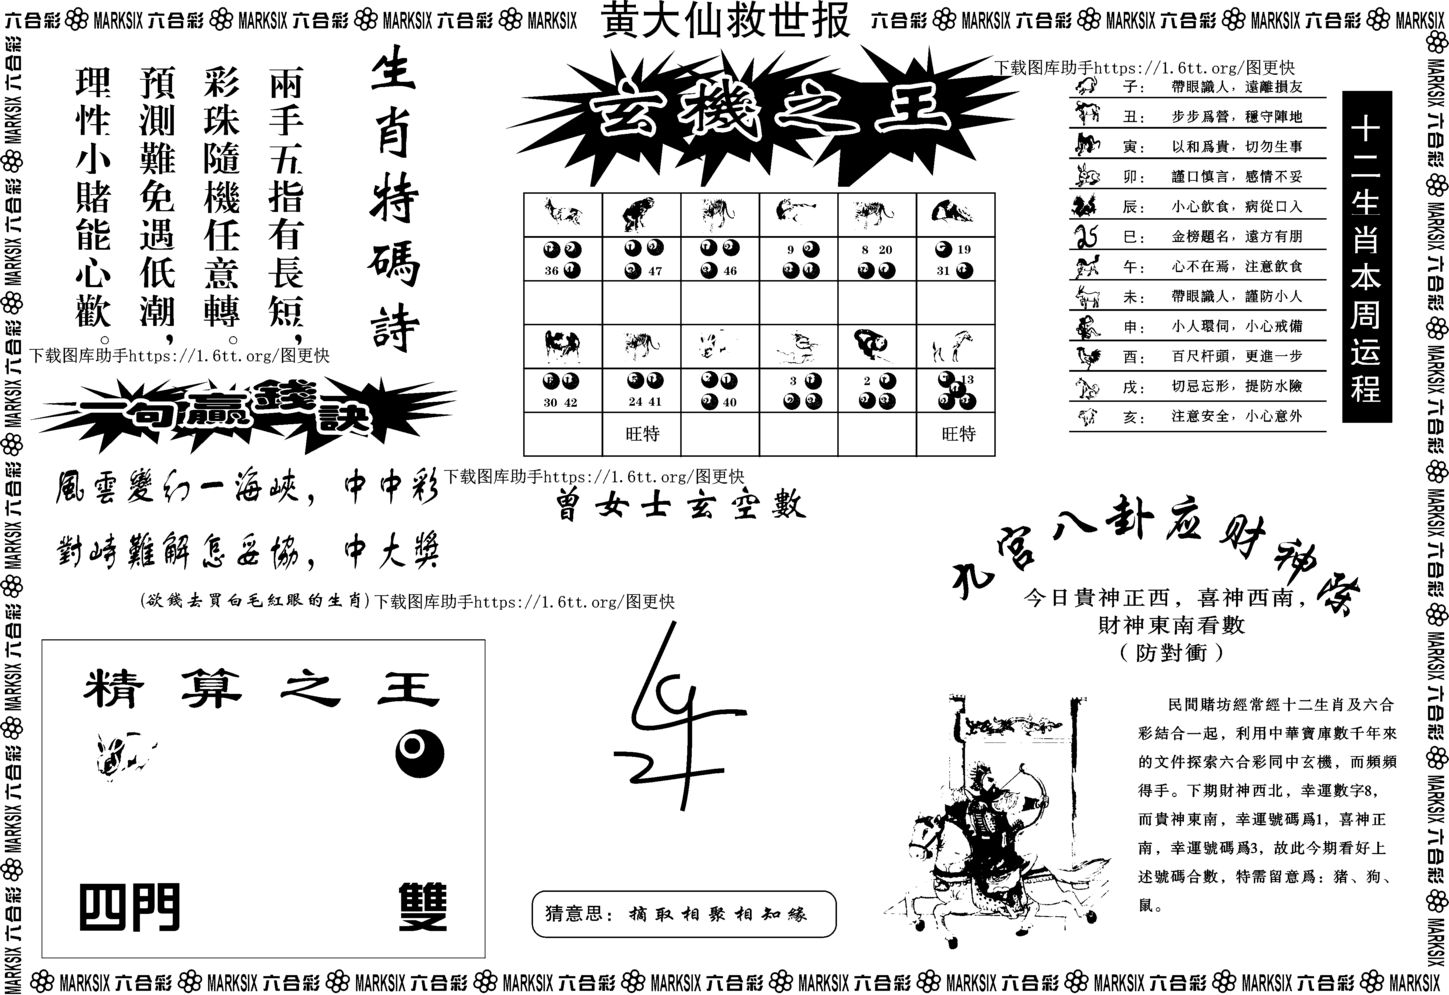 六合彩 MARKSIX 六合彩 MARKSIX 六合彩 MARKSIX 六合彩 MARKSIX
黄大仙救世报
六合彩 MARKSIX 六合彩 MARKSIX 六合彩 MARKSIX 六合彩 MARKSIX 六合彩 MARKSIX
生肖特碼詩
兩手五指有長短，
彩珠隨機任意轉。
預測難免遇低潮，
理性小賭能心歡。
下载图库助手https://1.6tt.org/图更快
一句贏錢訣
風雲變幻一海峽，中中彩
對峙難解怎妥協，中大獎
(欲錢去買白毛紅眼的生肖)
下载图库助手https://1.6tt.org/图更快
精算之王
四門
雙
玄機之王
36
47
46
9
8 20
19
31
30 42
24 41
40
3
2
13
旺特
旺特
下载图库助手https://1.6tt.org/图更快
曾女士玄空數
猜意思：摘取相聚相知緣
下载图库助手https://1.6tt.org/图更快
十二生肖本周运程
子：帶眼識人，遠離損友
丑：步步爲營，穩守陣地
寅：以和爲貴，切勿生事
卯：謹口慎言，感情不妥
辰：小心飲食，病從口入
巳：金榜題名，遠方有朋
午：心不在焉，注意飲食
未：帶眼識人，謹防小人
申：小人環伺，小心戒備
酉：百尺杆頭，更進一步
戌：切忌忘形，提防水險
亥：注意安全，小心意外
九宮八卦应财神
今日貴神正西，喜神西南，
財神東南看數
（防對衝）
民間賭坊經常經十二生肖及六合
彩結合一起，利用中華寶庫數千年來
的文件探索六合彩同中玄機，而頻頻
得手。下期財神西北，幸運數字8，
而貴神東南，幸運號碼爲1，喜神正
南，幸運號碼爲3，故此今期看好上
述號碼合數，特需留意爲：猪、狗、
鼠。
MARKSIX 六合彩 MARKSIX 六合彩 MARKSIX 六合彩 MARKSIX 六合彩 MARKSIX 六合彩 MARKSIX 六合彩 MARKSIX 六合彩 MARKSIX 六合彩 MARKSIX 六合彩 MARKSIX